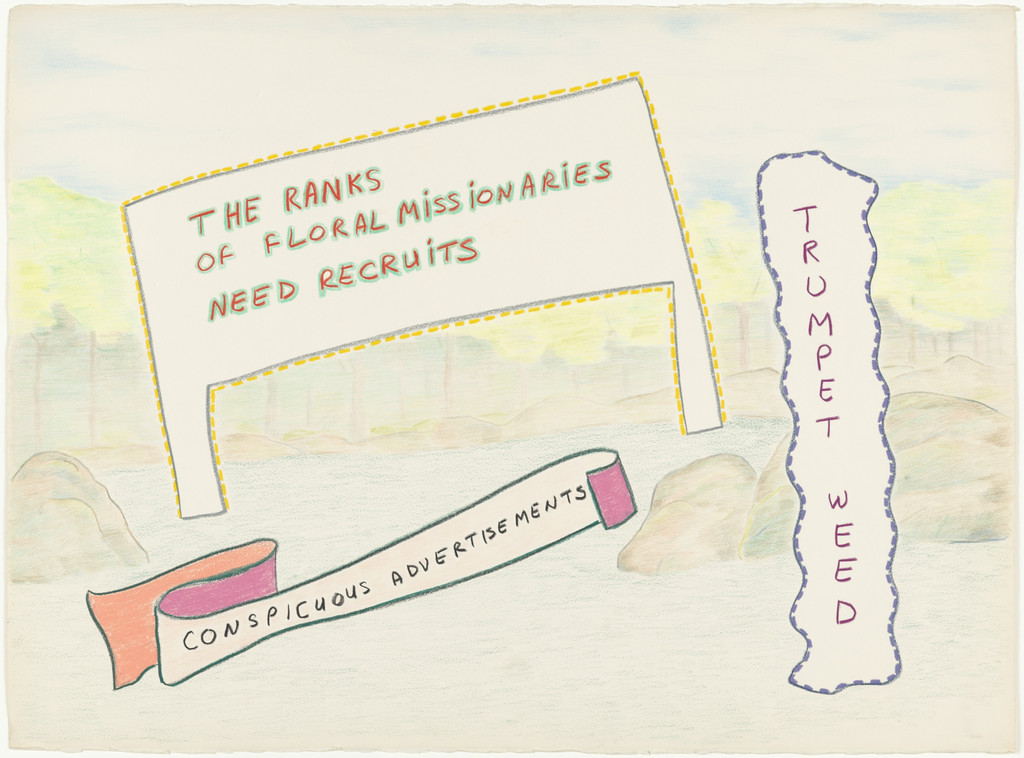 THE RANKS
OF FLORAL MiSSiONARiES
NEED RECRUiTS
CONSPICUOUS ADVERTISEMENTS
TRUMPET WEED